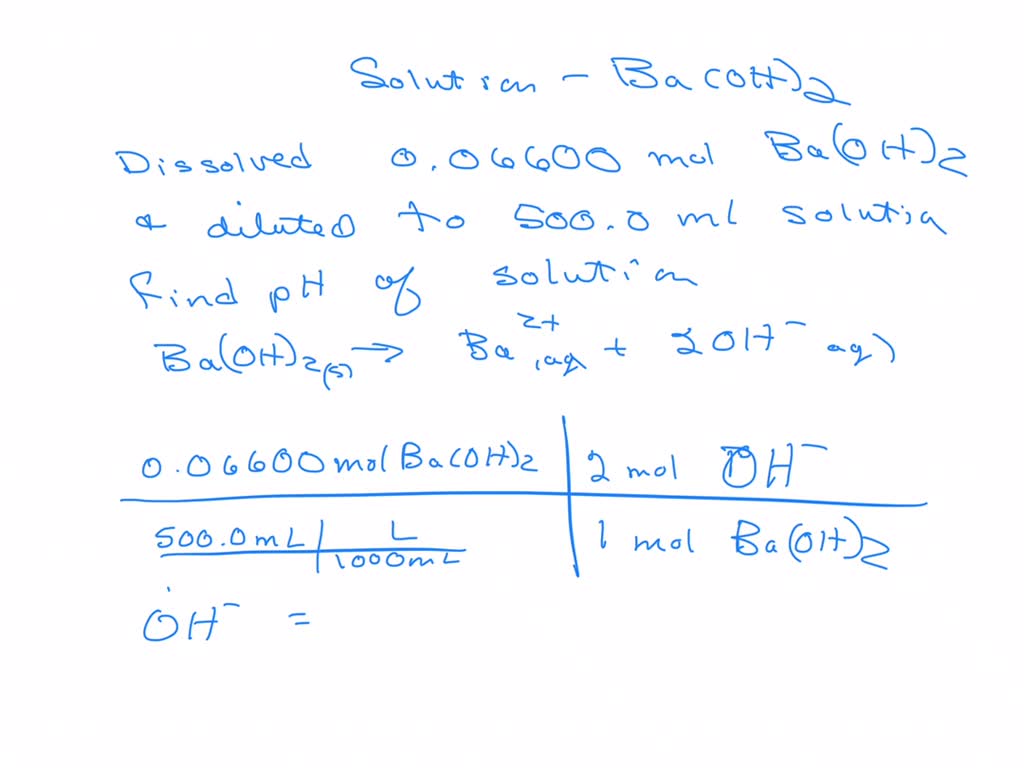 Solution - Ba(OH)2
Dissolved 0.06600 mol Ba(OH)2
& diluted to 500.0 ml solution
find pH of solution
Ba(OH)2(s) → Ba2+(aq) + 2OH- aq)
0.06600 mol Ba(OH)2 | 2 mol OH-
500.0 mL | L
1000 mL
1 mol Ba(OH)2
OH- =